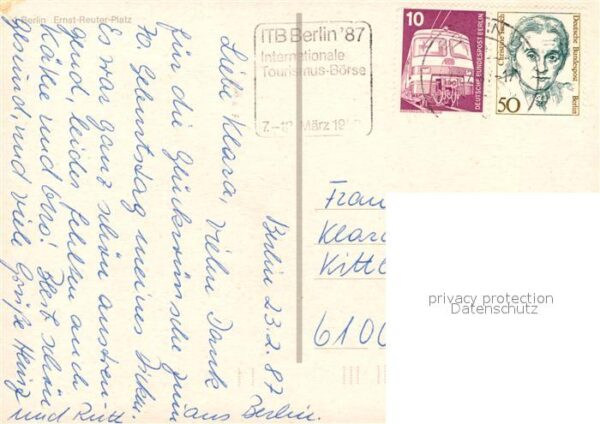 Berlin Ernst-Reuter-Platz
ITB Berlin '87
Internationale
Tourismus-Börse
7.-12. März 1987
10
DEUTSCHE BUNDESPOST BERLIN
50
Christine Teusch
Deutsche Bundespost
Berlin
Berlin 23.2.87
Liebe Klara, vielen Dank
für die Glückwünsche zum
70. Geburtstag meines
Es war ganz schön anstren-
gend, leider fehlten auch
und
gesund, und viele Grüße Heinz
und Ruth aus Berlin.
Frau
Klara
Kitte
6100
privacy protection
Datenschutz